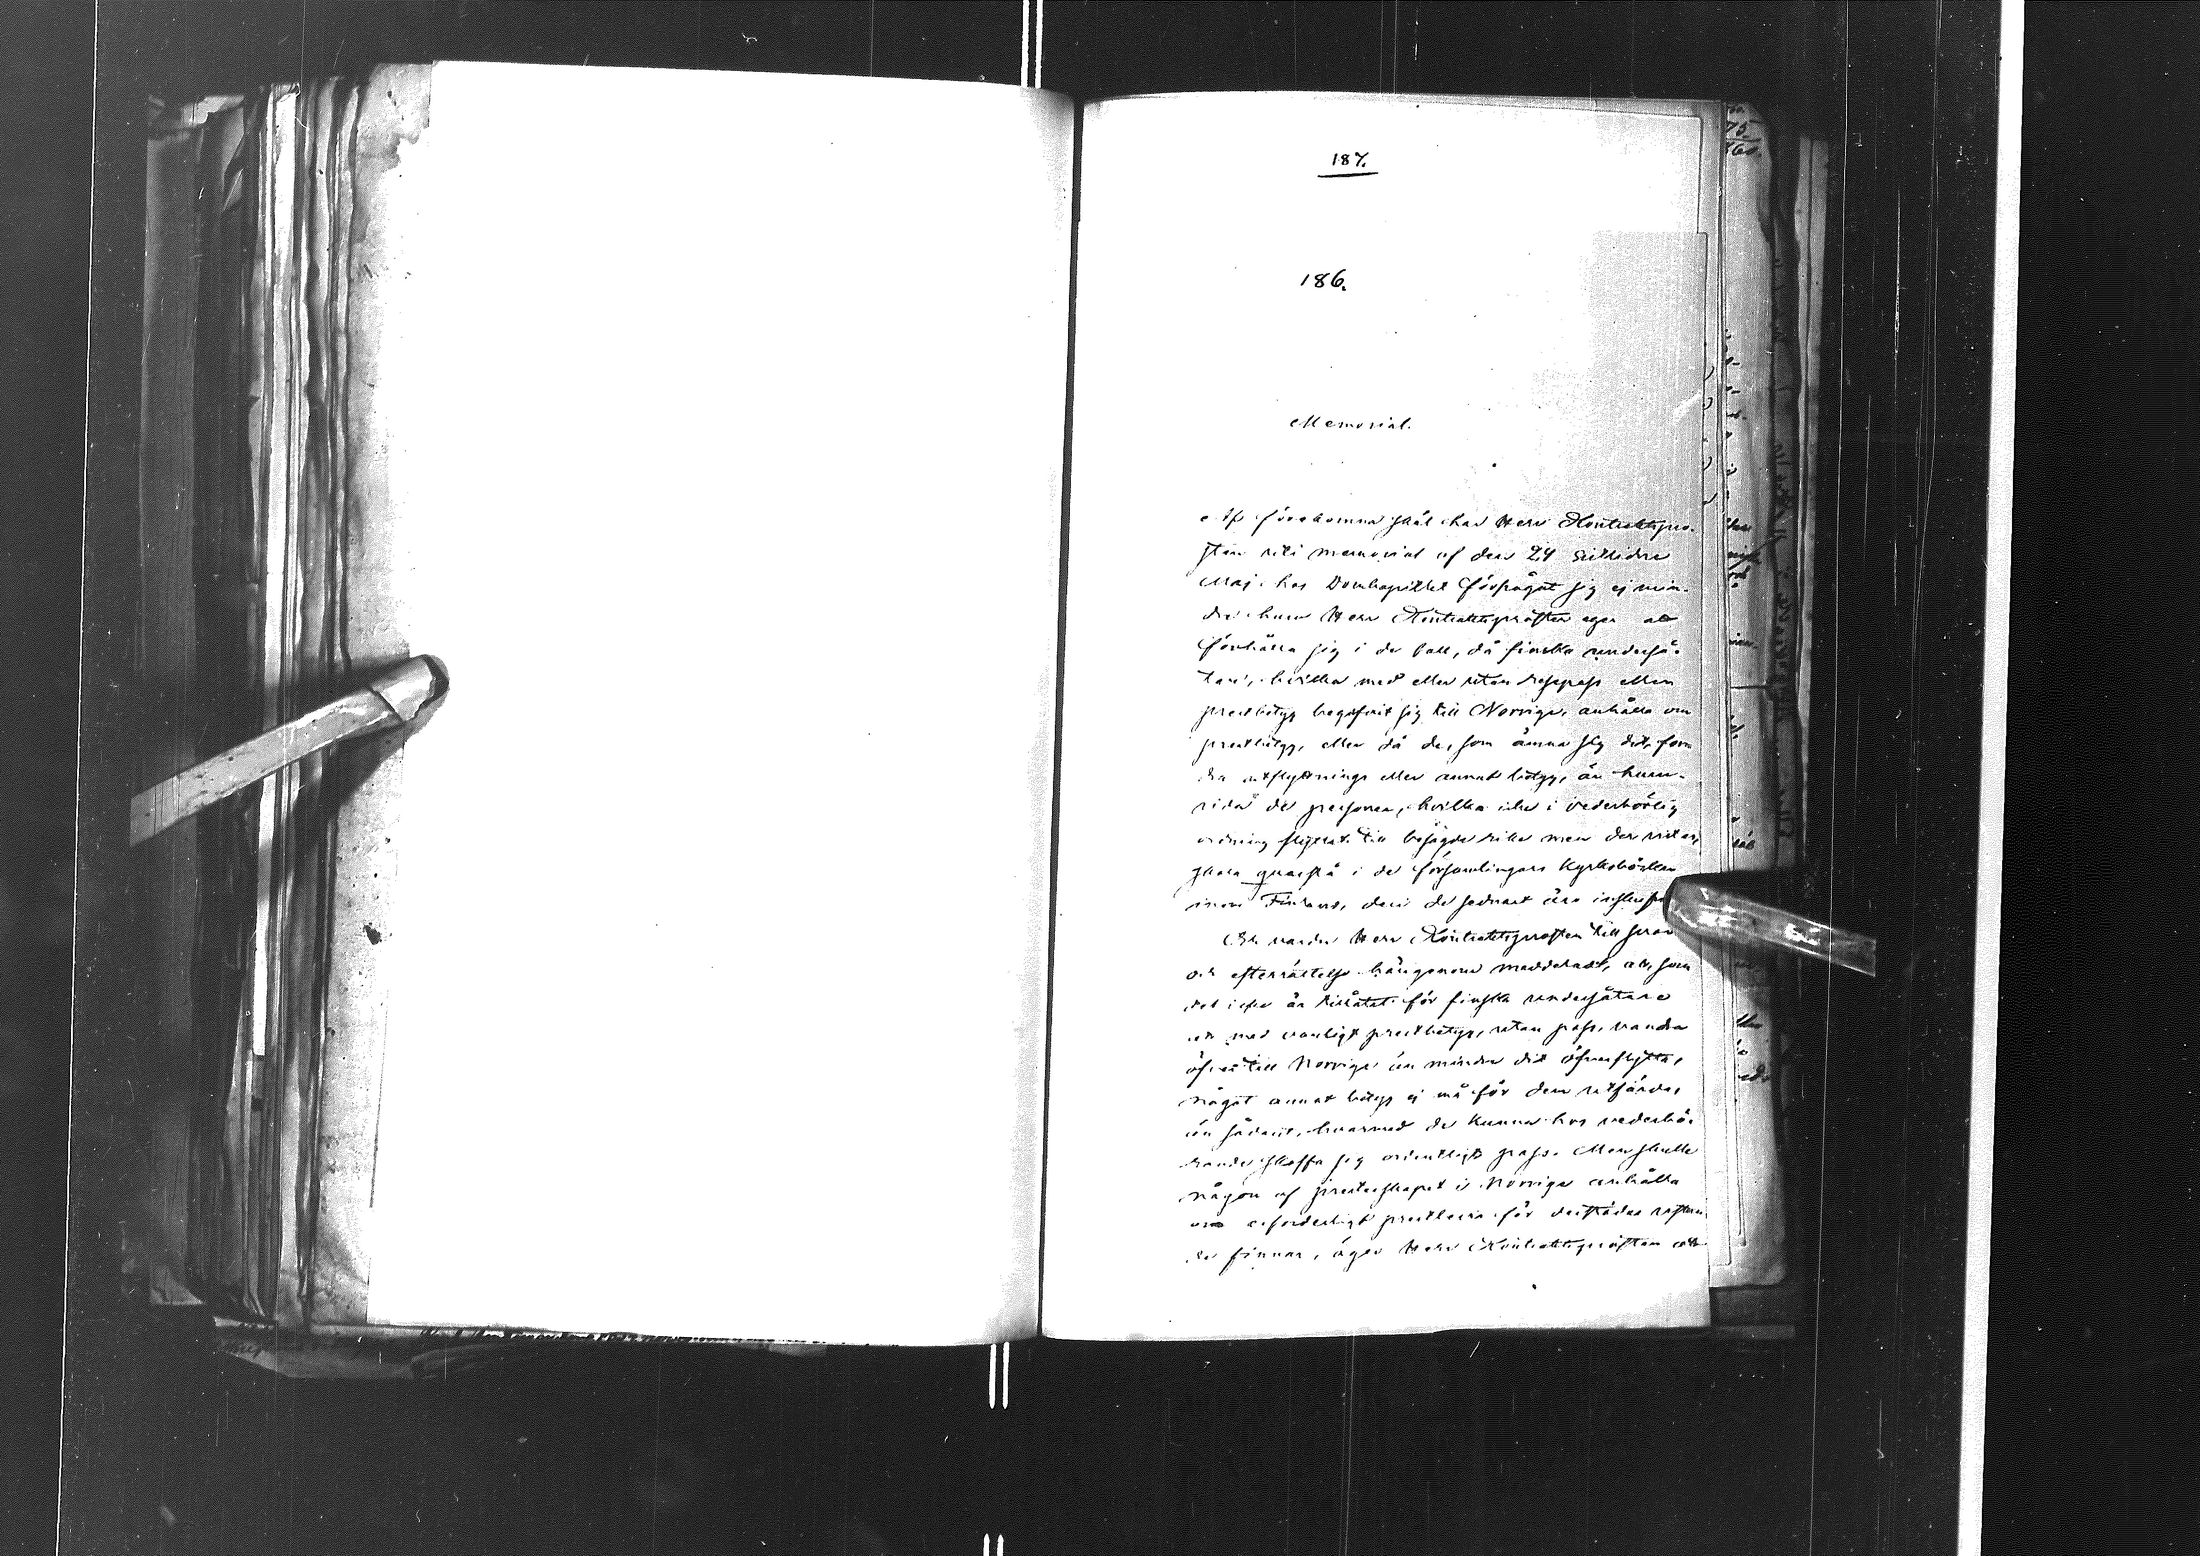 187.
186.
Memorial.
Af förekomna skäl har Herr Kontraktspro-
sten uti memorial af den 24 sistlidne
Maj hos Domkapitlet förfrågat sig ej min-
dre huru Herr Kontraktsprosten eger att
förhålla sig i de fall, då finska underså-
tare, hvilka med eller utan respass eller
prestbetyg begifvit sig till Norrige, anhålla om
prestbetyg, eller då de, som ämna sig dit, ford
dra utflyttnings eller annat betyg, än huru-
vida de personer, hvilka icke i vederbörlig
ordning flyttat till besagde rike men der vistas,
skola qvarstå i de församlingars Kyrkoböcker
inom Finland, deri de sednast äro inskrifne
Och varder Herr Kontraktsprosten till svar
och efterrättelse härigenom meddeladt, att, som
det icke är tillåtet för finska undersåtare
att med vanligt prestbetyg, utan pass, vandra
öfver till Norrige än mindre dit öfverflytta,
något annat betyg ej må för dem utfärdas
än sådant, hvarmed de kunna hos vederbö-
rande skaffa sig ordentligt pass. Men skulle
någon af presterskapet i Norrige anhålla
om erforderligt prestbevis för derstädes vistan-
de finnar, äger Herr Kontraktsprosten att